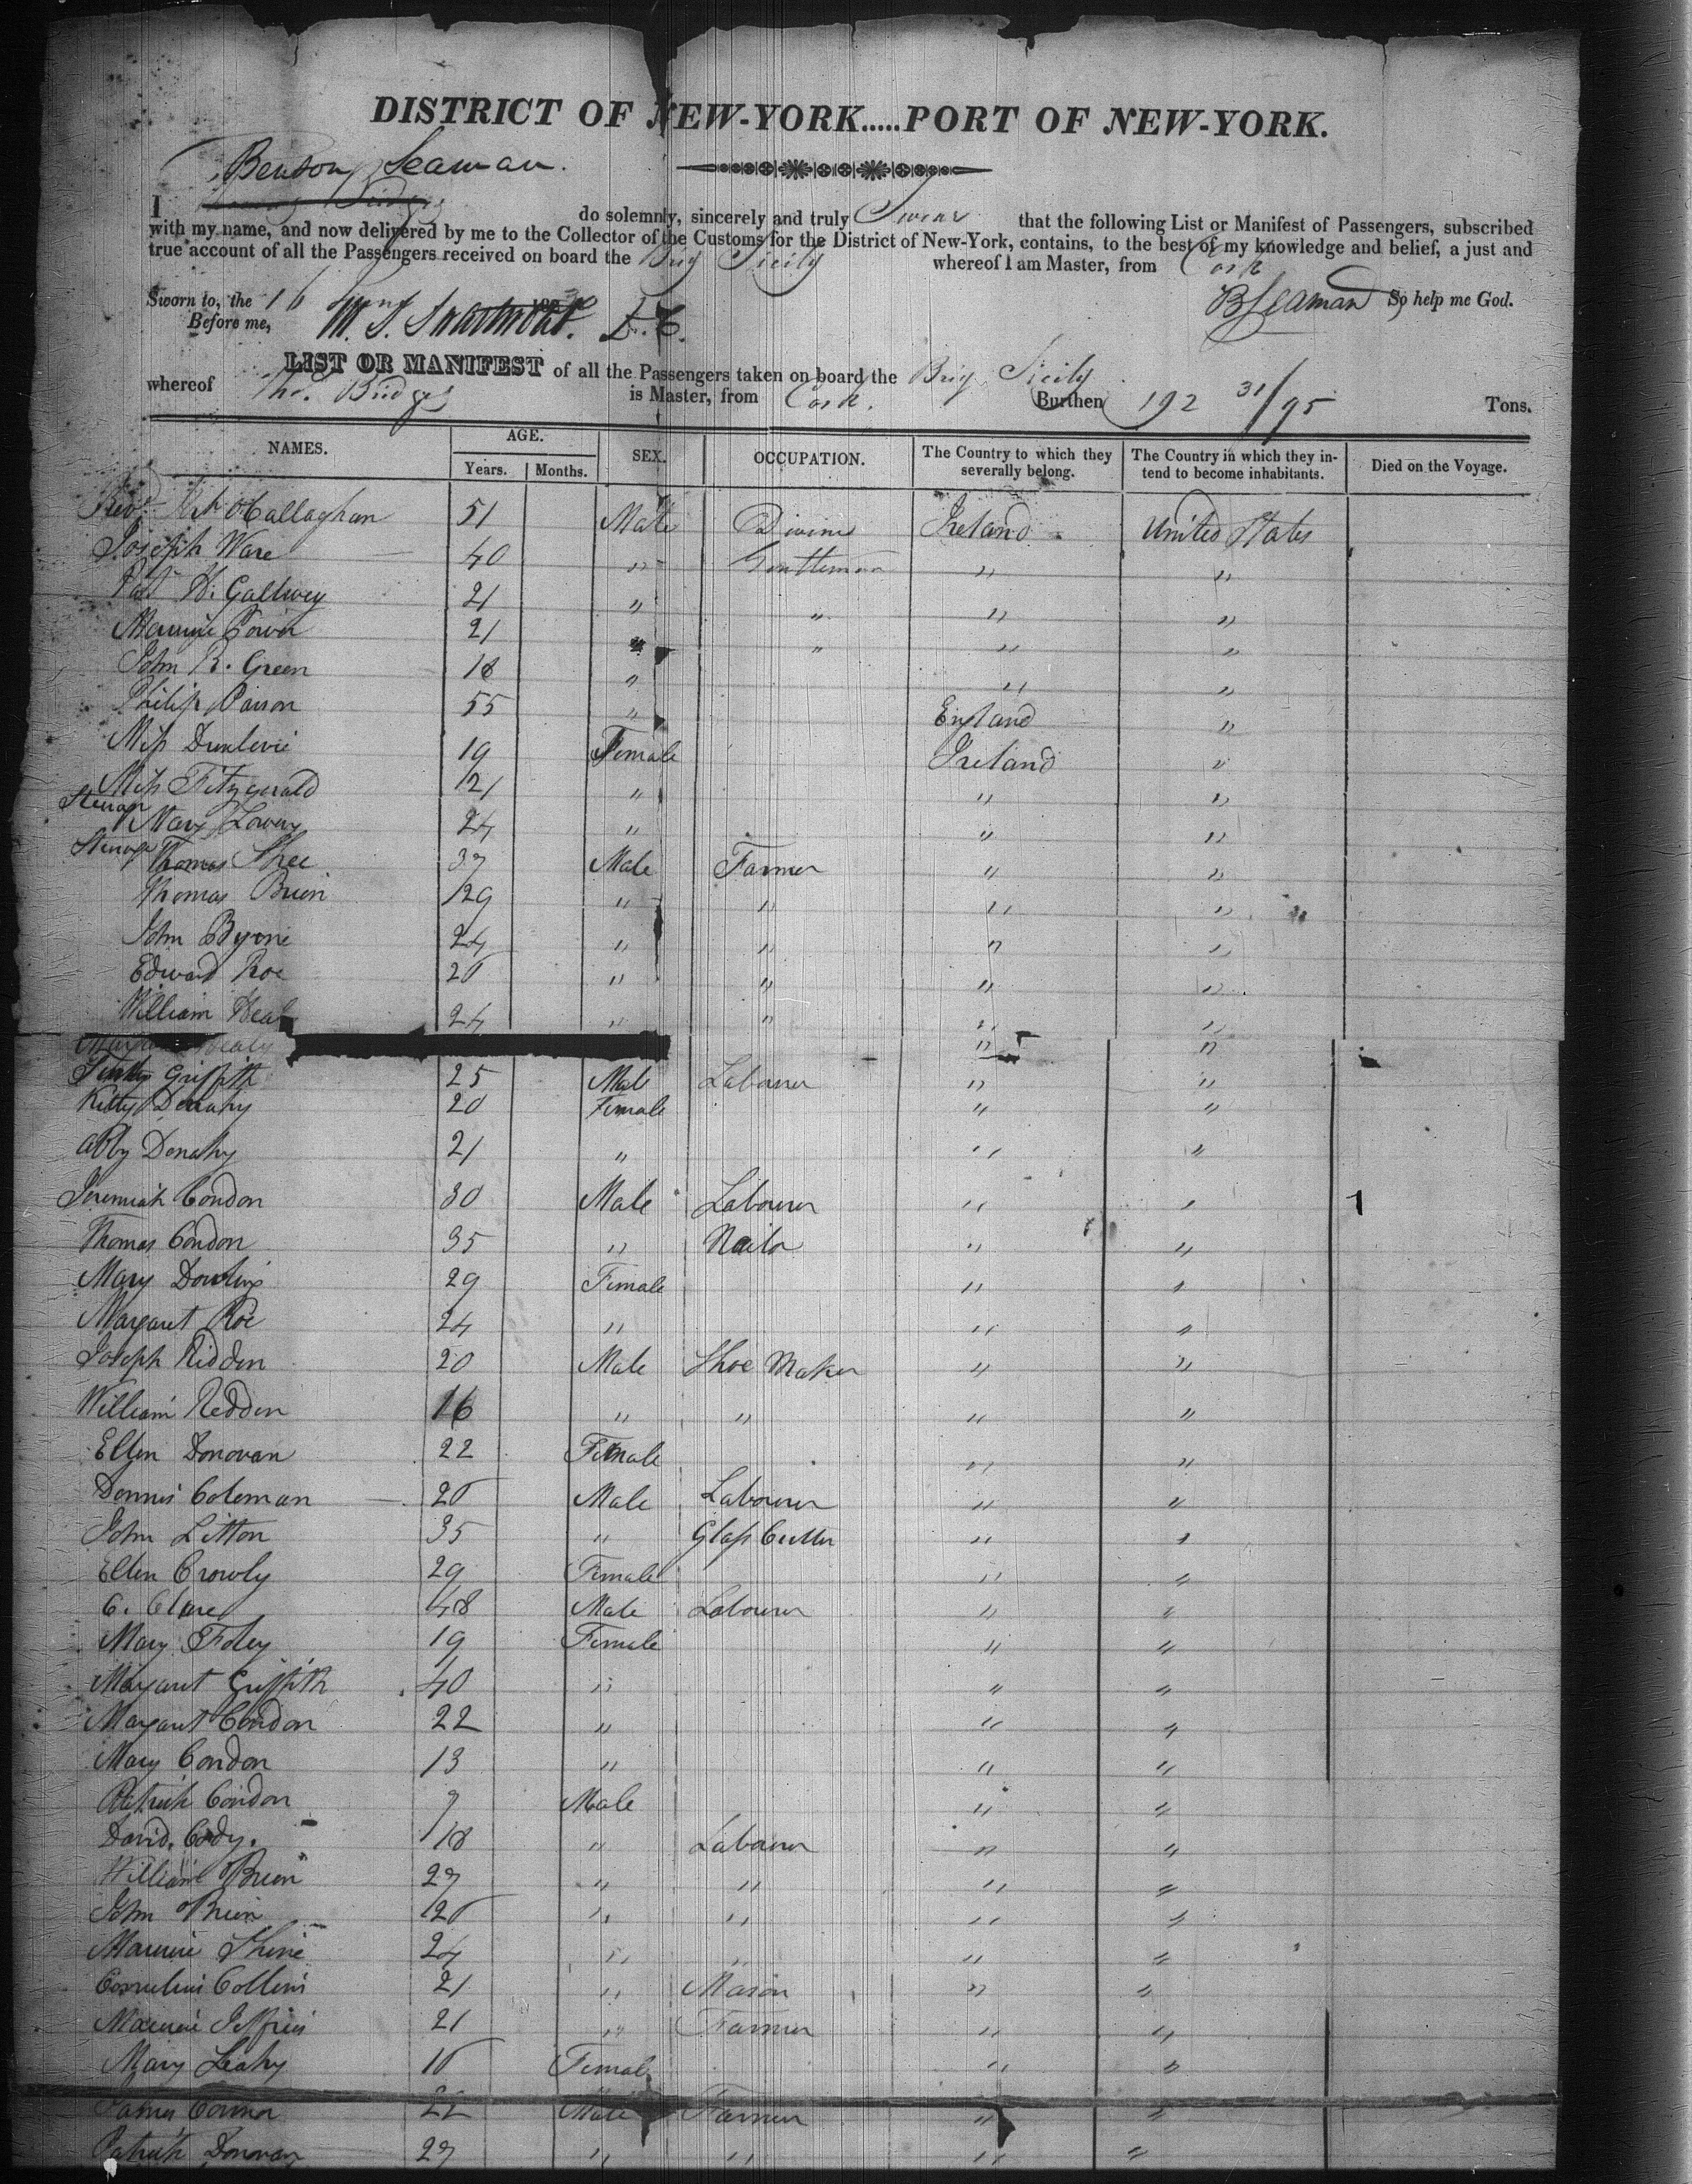 DISTRICT OF NEW-YORK.....PORT OF NEW-YORK.
Benson Seaman.
I do solemnly, sincerely and truly Swear that the following List or Manifest of Passengers, subscribed
with my name, and now delivered by me to the Collector of the Customs for the District of New-York, contains, to the best of my knowledge and belief, a just and
true account of all the Passengers received on board the Brig Sicily whereof I am Master, from Cork
Sworn to, the 16 So help me God.
BSeaman
Before me, M. S. Swartwout. D.C.
LIST OR MANIFEST of all the Passengers taken on board the Brig Sicily
whereof Tho. Bridges is Master, from Cork. Burthen 192 31/95 Tons.
NAMES. AGE. SEX. OCCUPATION. The Country to which they severally belong. The Country in which they intend to become inhabitants. Died on the Voyage.
Years. Months.
Revd. O'Callaghan 51 Male Divine Ireland United States
Joseph Ware 40 " Gentleman " "
Pat H. Gallwey 21 " " " "
Maurice Power 21 " " " "
John R. Green 18 " " "
Philip Parson 55 " England "
Miss Dunlevie 19 Female Ireland "
Miss Fitzgerald 21 " " "
Mary Lowry 24 " " "
Steerage Thomas Shee 37 Male Farmer " "
Thomas Brien 29 " " " "
John Byrne 24 " " " "
Edward Roe 20 " " " "
William 24 " " " "
Healy " "
Griffith 25 Male Labourer " "
Kitty Denahy 20 Female " "
Abby Denahy 21 " " "
Jeremiah Condon 30 Male Labourer " "
Thomas Condon 35 " Nailor " "
Mary Dowling 29 Female " "
Margaret Roe 24 " " "
Joseph Ridden 20 Male Shoe Maker " "
William Redden 16 " " " "
Ellen Donovan 22 Female " "
Dennis Coleman 20 Male Labourer " "
John Litton 35 " Glass Cutter " "
Ellen Crowly 29 Female " "
C. Clare 48 Male Labourer " "
Mary Foley 19 Female " "
Margaret Griffith 40 " " "
Margaret Condon 22 " " "
Mary Condon 13 " " "
Patrick Condon 7 Male " "
David Cody. 18 " Labourer " "
William Brien 27 " " " "
John Brien 20 " " " "
Maurice Shine 24 " " " "
Cornelius Collins 21 " Mason " "
Maurice Jeffries 21 " Farmer " "
Mary Leahy 10 Female " "
James Connor 22 Male Farmer " "
Patrick Donovan 27 " " " "